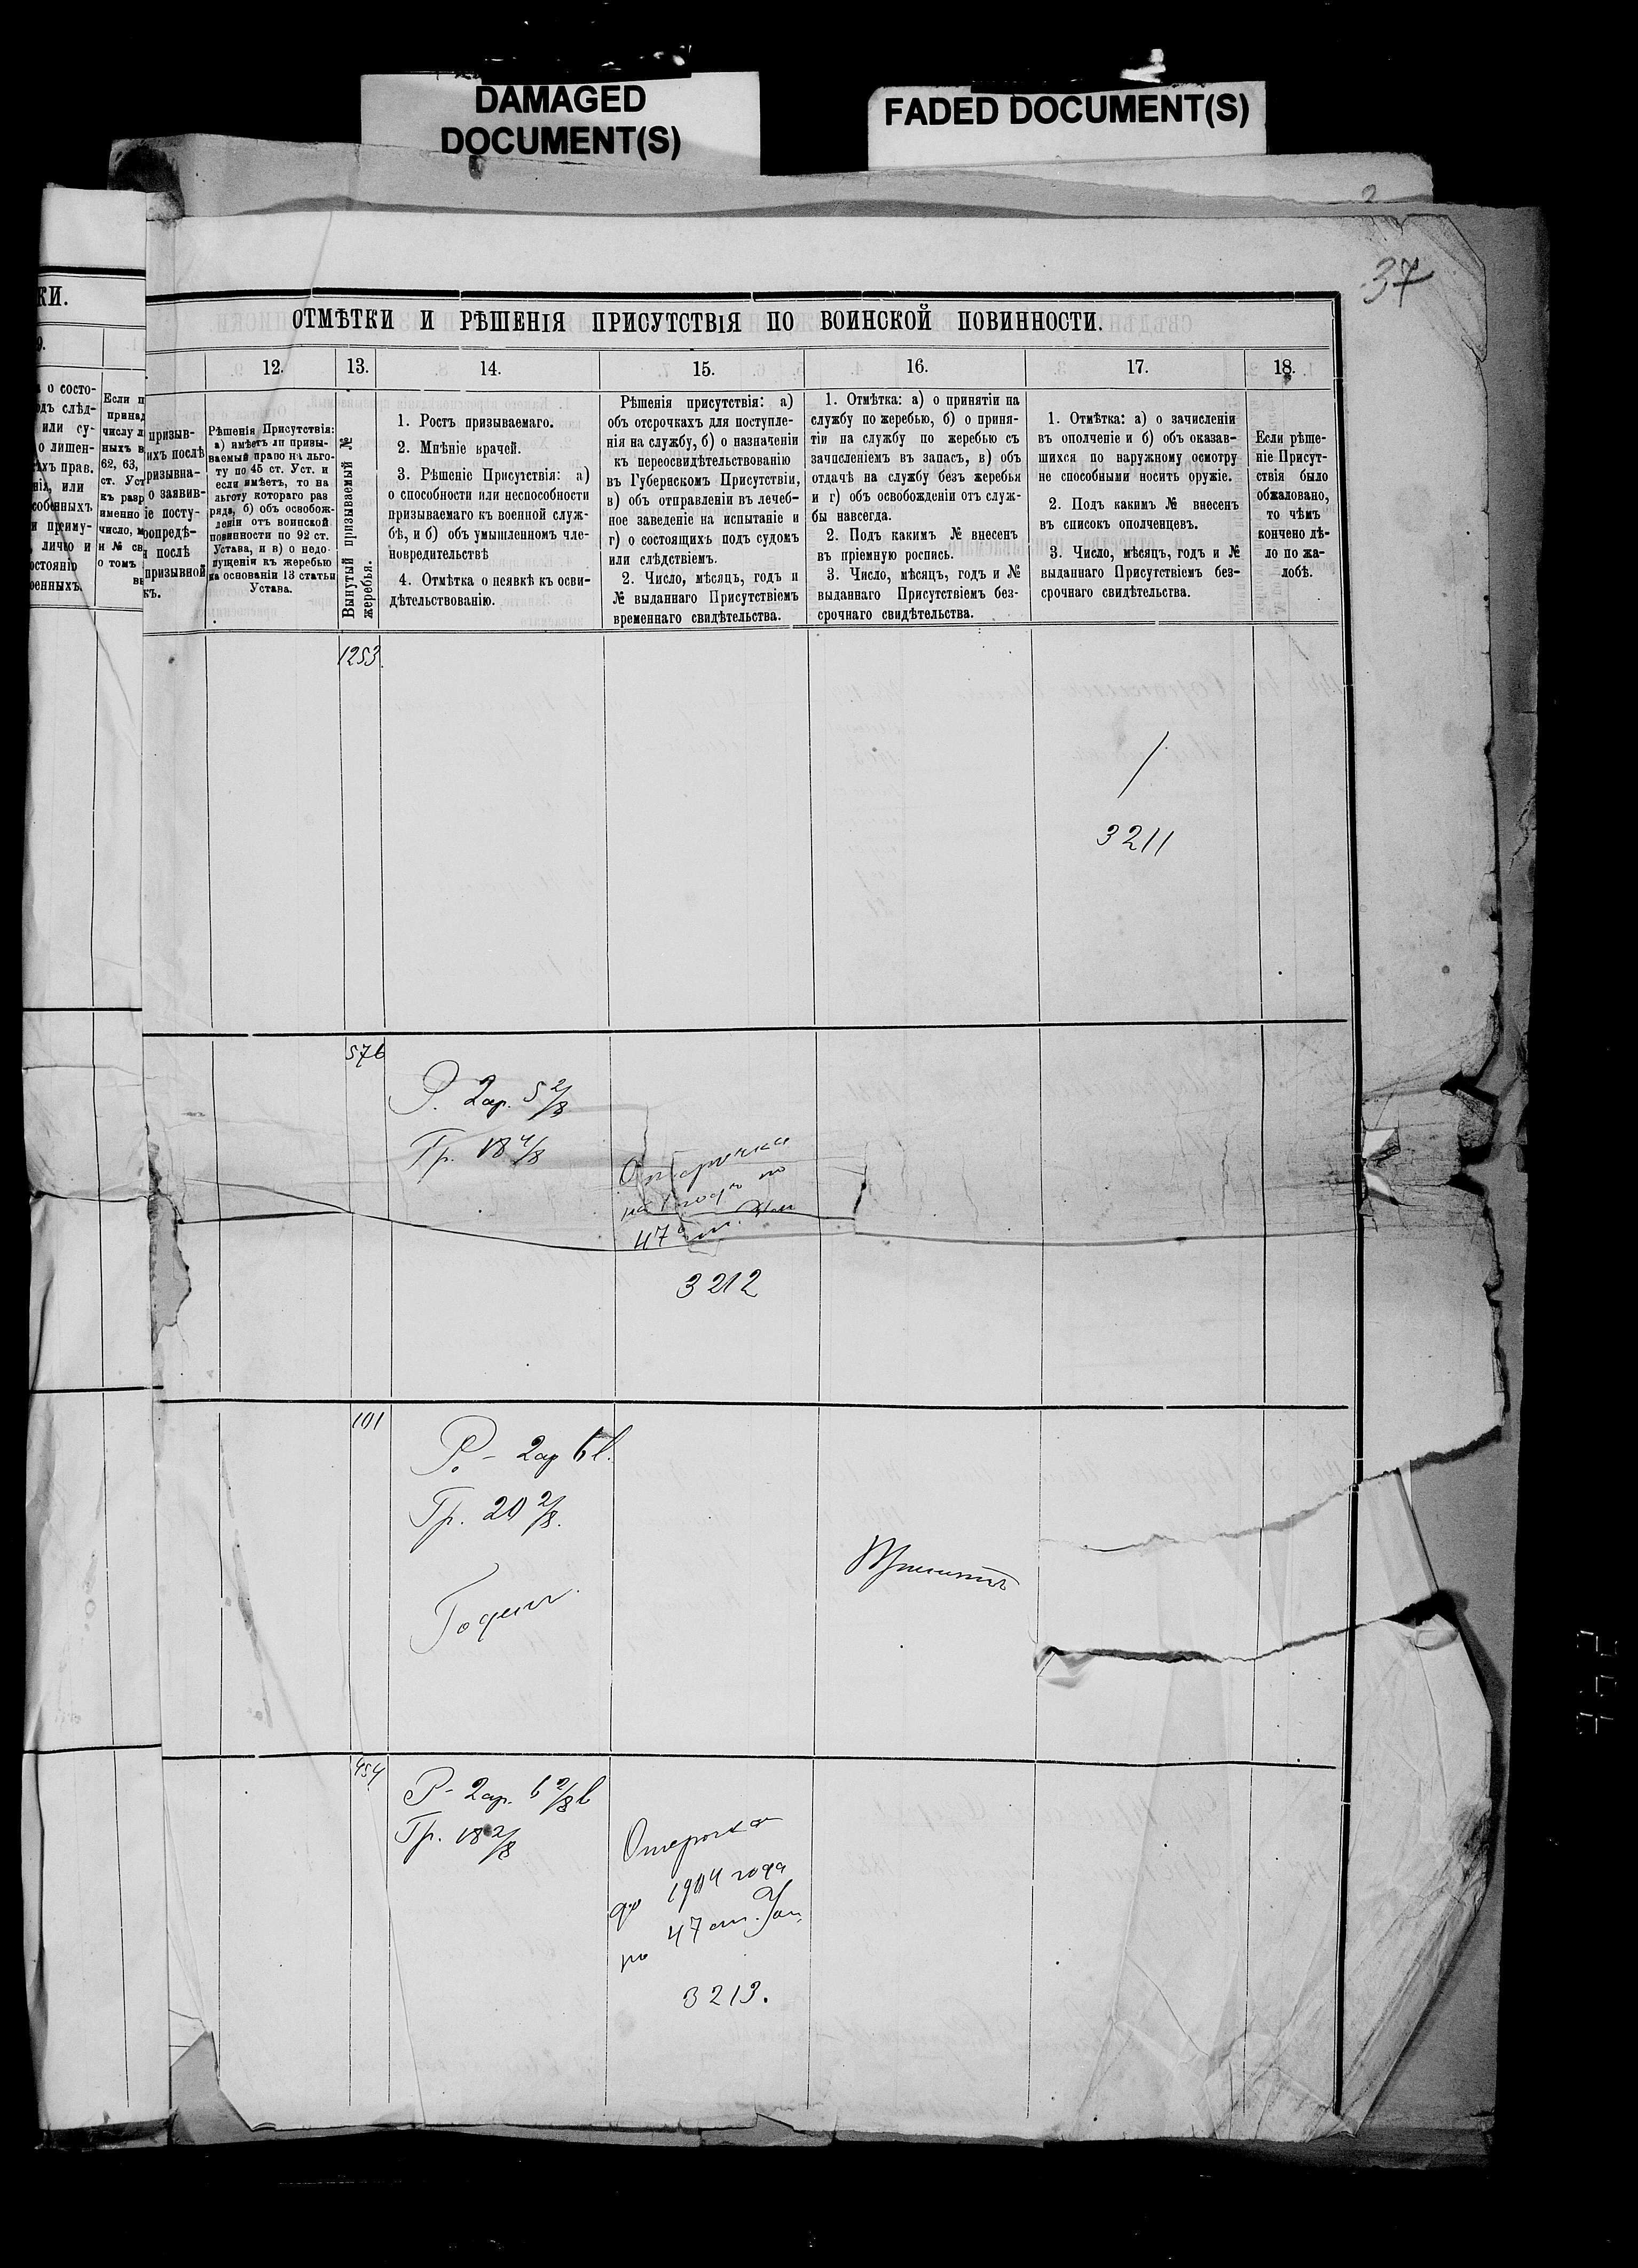 DAMAGED
DOCUMENT(S)
FADED DOCUMENT(S)
37
КИ.
ОТМѢТКИ И РѢШЕНІЯ ПРИСУТСТВІЯ ПО ВОИНСКОЙ ПОВИННОСТИ.
9.
о состо-
одъ слѣд-
или су-
о лишен-
ихъ прав.
нія, или
собенныхъ
и преиму-
лично и
остоянію
оенныхъ.
Если п
принад
числу л
ныхъ в
62, 63,
ст. Уст
къ разр
именно
число, м
и № св
о томъ
вы
призыв-
ихъ послѣ
призывна-
о заявив-
іе посту-
опредѣ-
и послѣ
призывной
къ.
12.
Рѣшенія Присутствія:
а) имѣетъ ли призы-
ваемый право на льго-
ту по 45 ст. Уст. и
если имѣетъ, то на
льготу котораго раз
ряда, б) объ освобож-
деніи отъ воинской
повинности по 92 ст.
Устава, и в) о недо-
пущеніи къ жеребью
на основаніи 13 статьи
Устава.
13.
Вынутый призываемый №
жеребья.
14.
1. Ростъ призываемаго.
2. Мнѣніе врачей.
3. Рѣшеніе Присутствія: а)
о способности или неспособности
призываемаго къ военной служ-
бѣ, и б) объ умышленномъ чле-
новредительствѣ
4. Отмѣтка о неявкѣ къ осви-
дѣтельствованію.
15.
Рѣшенія присутствія: а)
объ отсрочкахъ для поступле-
нія на службу, б) о назначеніи
къ переосвидѣтельствованію
въ Губернскомъ Присутствіи,
в) объ отправленіи въ лечеб-
ное заведеніе на испытаніе и
г) о состоящихъ подъ судомъ
или слѣдствіемъ.
2. Число, мѣсяцъ, годъ и
№ выданнаго Присутствіемъ
временнаго свидѣтельства.
16.
1. Отмѣтка: а) о принятіи на
службу по жеребью, б) о приня-
тіи на службу по жеребью съ
зачисленіемъ въ запасъ, в) объ
отдачѣ на службу безъ жеребья
и г) объ освобожденіи отъ служ-
бы навсегда.
2. Подъ какимъ № внесенъ
въ пріемную роспись.
3. Число, мѣсяцъ, годъ и №
выданнаго Присутствіемъ без-
срочнаго свидѣтельства.
17.
1. Отмѣтка: а) о зачисленіи
въ ополченіе и б) объ оказав-
шихся по наружному осмотру
не способными носить оружіе.
2. Подъ какимъ № внесенъ
въ списокъ ополченцевъ.
3. Число, мѣсяцъ, годъ и №
выданнаго Присутствіемъ без-
срочнаго свидѣтельства.
18.
Если рѣше-
ніе Присут-
ствія было
обжаловано,
то чѣмъ
кончено дѣ-
ло по жа-
лобѣ.
1253.
/
3211
576
Р. 2ар. 5 2/8
Гр. 18 4/8
Отсрочка
на 1 годъ по
47 ст. Уст
3212
101
Р. - 2ар 6 в.
Гр. 20 2/8.
Годенъ
Принятъ
454
Р - 2ар. 6 2/8 в
Гр. 18 2/8
Отсрочка
до 1904 года
по 47 ст. Уст.
3213.